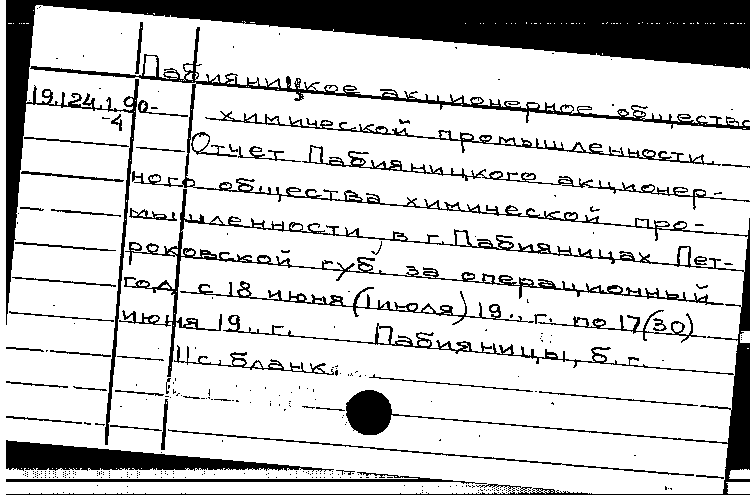 Пабияницкое акционерное общество
19.124.1.90-
-4
химической промышленности.
Отчет Пабияницкого акционер-
ного общества химической про-
мышленности в г. Пабияницах Пет-
роковской губ. за операционный
год с 18 июня (1 июля) 19.. г. по 17(30)
июня 19.. г. Пабияницы, б. г.
11 с. бланк.